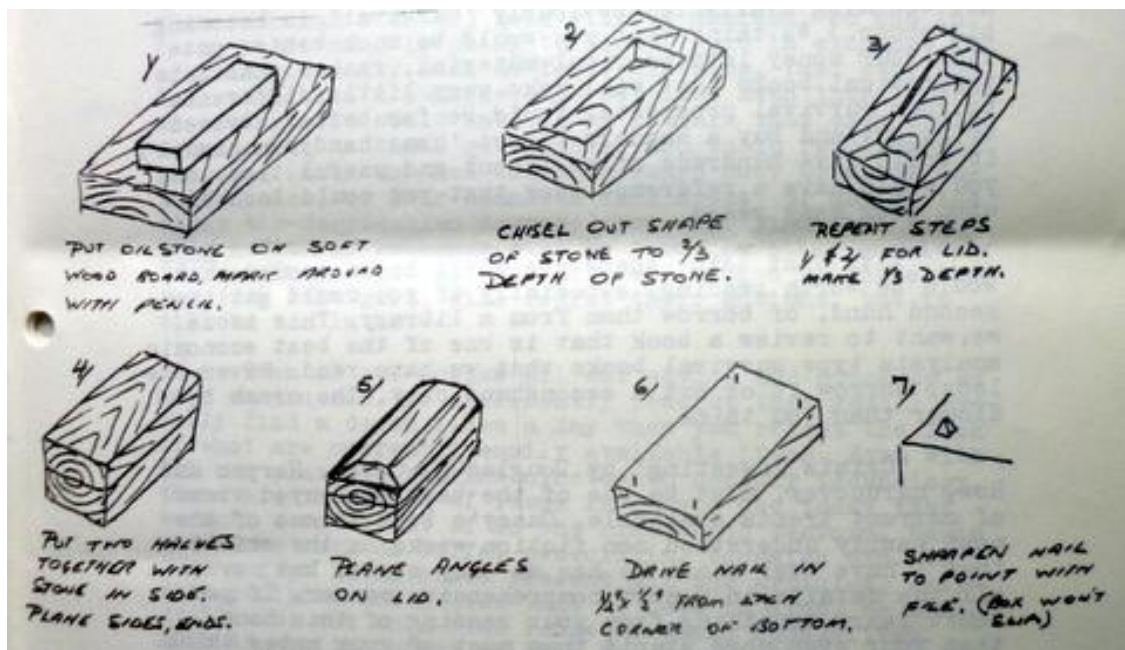 1/
PUT OILSTONE ON SOFT
WOOD BOARD, MARK AROUND
WITH PENCIL.
2/
CHISEL OUT SHAPE
OF STONE TO 2/3
DEPTH OF STONE.
3/
REPEAT STEPS
1/ & 2/ FOR LID.
MAKE 1/3 DEPTH.
4/
PUT TWO HALVES
TOGETHER WITH
STONE IN SIDE.
PLANE SIDES, ENDS.
5/
PLANE ANGLES
ON LID.
6/
DRIVE NAIL IN
FROM EACH
CORNER OF BOTTOM.
7/
SHARPEN NAIL
TO POINT WITH
FILE. (BOX WON'T
SLIP)